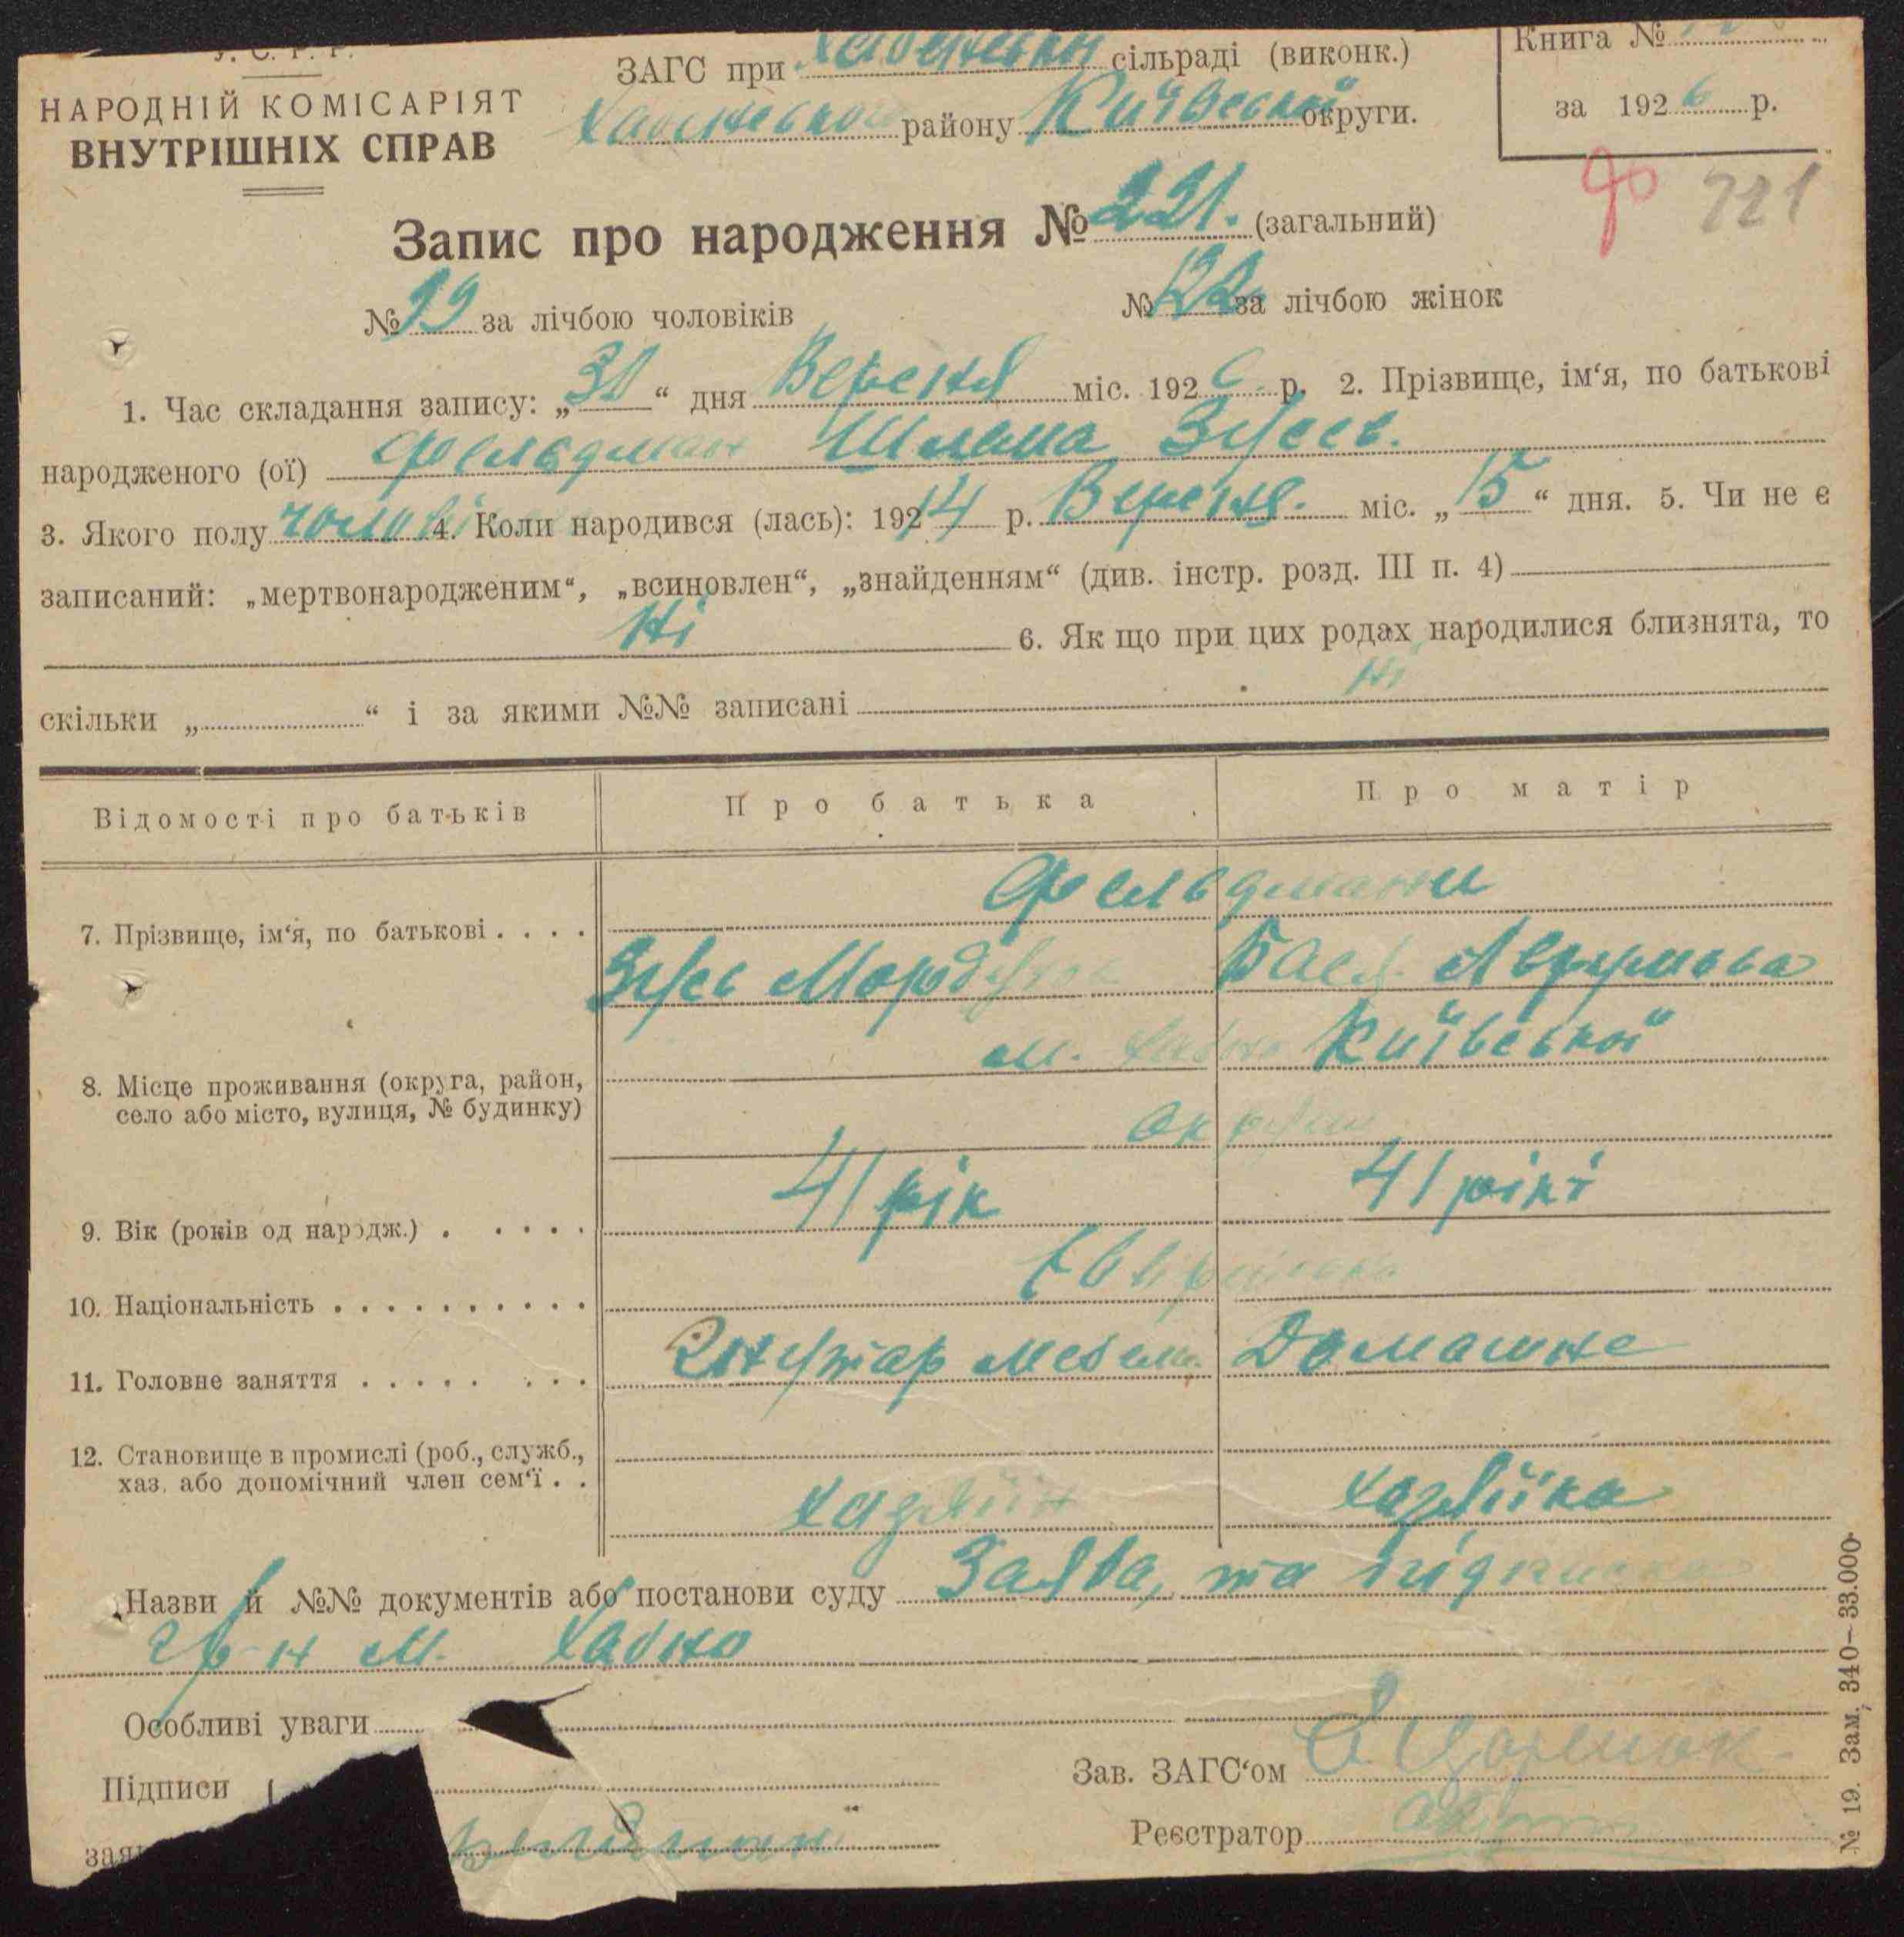 У. С. Р. Р.
НАРОДНІЙ КОМІСАРІЯТ
ВНУТРІШНІХ СПРАВ
ЗАГС при сільраді (виконк.)
району Київської округи.
Книга №
за 1926 р.
221
Запис про народження № 221. (загальний)
№ 99 за лічбою чоловіків
№ 122 за лічбою жінок
1. Час складання запису: „30“ дня Вересня міс. 1926 р. 2. Прізвище, ім‘я, по батькові
народженого (ої) Фельдман Шлема Зусев.
3. Якого полу чолові 4. Коли народився (лась): 19214 р. Вересня. міс. „15“ дня. 5. Чи не є
записаний: „мертвонародженим“, „всиновлен“, „знайденням“ (див. інстр. розд. III п. 4)
Ні 6. Як що при цих родах народилися близнята, то
скільки „ “ і за якими №№ записані Ні
Відомості про батьків Про батька Про матір
Фельдмани
7. Прізвище, ім‘я, по батькові . . . .
Зусь Мордухов Бася Аврумова
м. Хабно Київської
8. Місце проживання (округа, район,
село або місто, вулиця, № будинку)
округи
9. Вік (років од народж.) . . . . . 41 рік 41 рікі
10. Національність . . . . . . . . . . Еврейська
11. Головне заняття . . . . . . . . Домашне
12. Становище в промислі (роб., служб.,
хаз. або допомічний член сем‘ї . .
Хазяїн Хазяїка
Назви й №№ документів або постанови суду Заява, та підписка
гр-н м. Хабно
Особливі уваги
Підписи (
Зав. ЗАГС‘ом
заяв Фельдман
Реєстратор
№ 19. Зам. 340—33.000